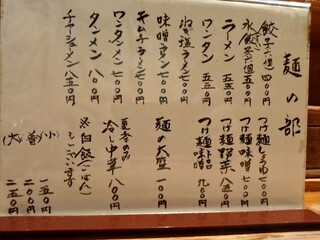 麺の部
餃子(六個) 四〇〇円
水餃子(六個) 五〇〇円
ラーメン 五五〇円
ワンタン 五五〇円
ねぎ塩ラーメン 七〇〇円
味噌ラーメン 七〇〇円
キムチラーメン 七〇〇円
ワンタンメン 七〇〇円
タンメン 八〇〇円
チャーシューメン 八五〇円
つけ麺しょうゆ 七〇〇円
つけ麺味噌 七〇〇円
つけ麺野菜 八五〇円
つけ麺 味噌 九〇〇円
麺の大盛 一〇〇円
夏季のみ
冷し中華 八〇〇円
※白飯(ごはん)
もございます
(小) 一五〇円
(普) 二〇〇円
(大) 二五〇円